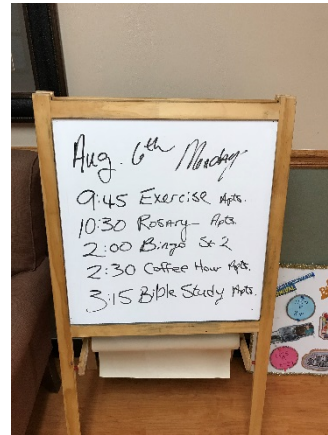 Aug. 6th Monday
9:45 Exercise Apts.
10:30 Rosary- Apts.
2:00 Bingo St 2
2:30 Coffee Hour Apts.
3:15 Bible Study Apts.